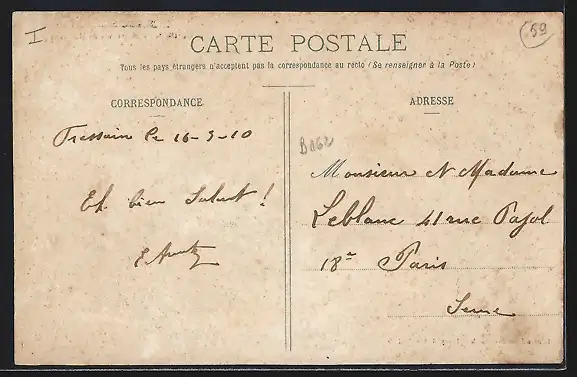 I
59
CARTE POSTALE
Tous les pays étrangers n'acceptent pas la correspondance au recto (Se renseigner à la Poste)
CORRESPONDANCE
ADRESSE
le 16-3-10
Eh bien Salut !
Monsieur et Madame
Leblanc 41 rue Pajol
18e Paris
Seine